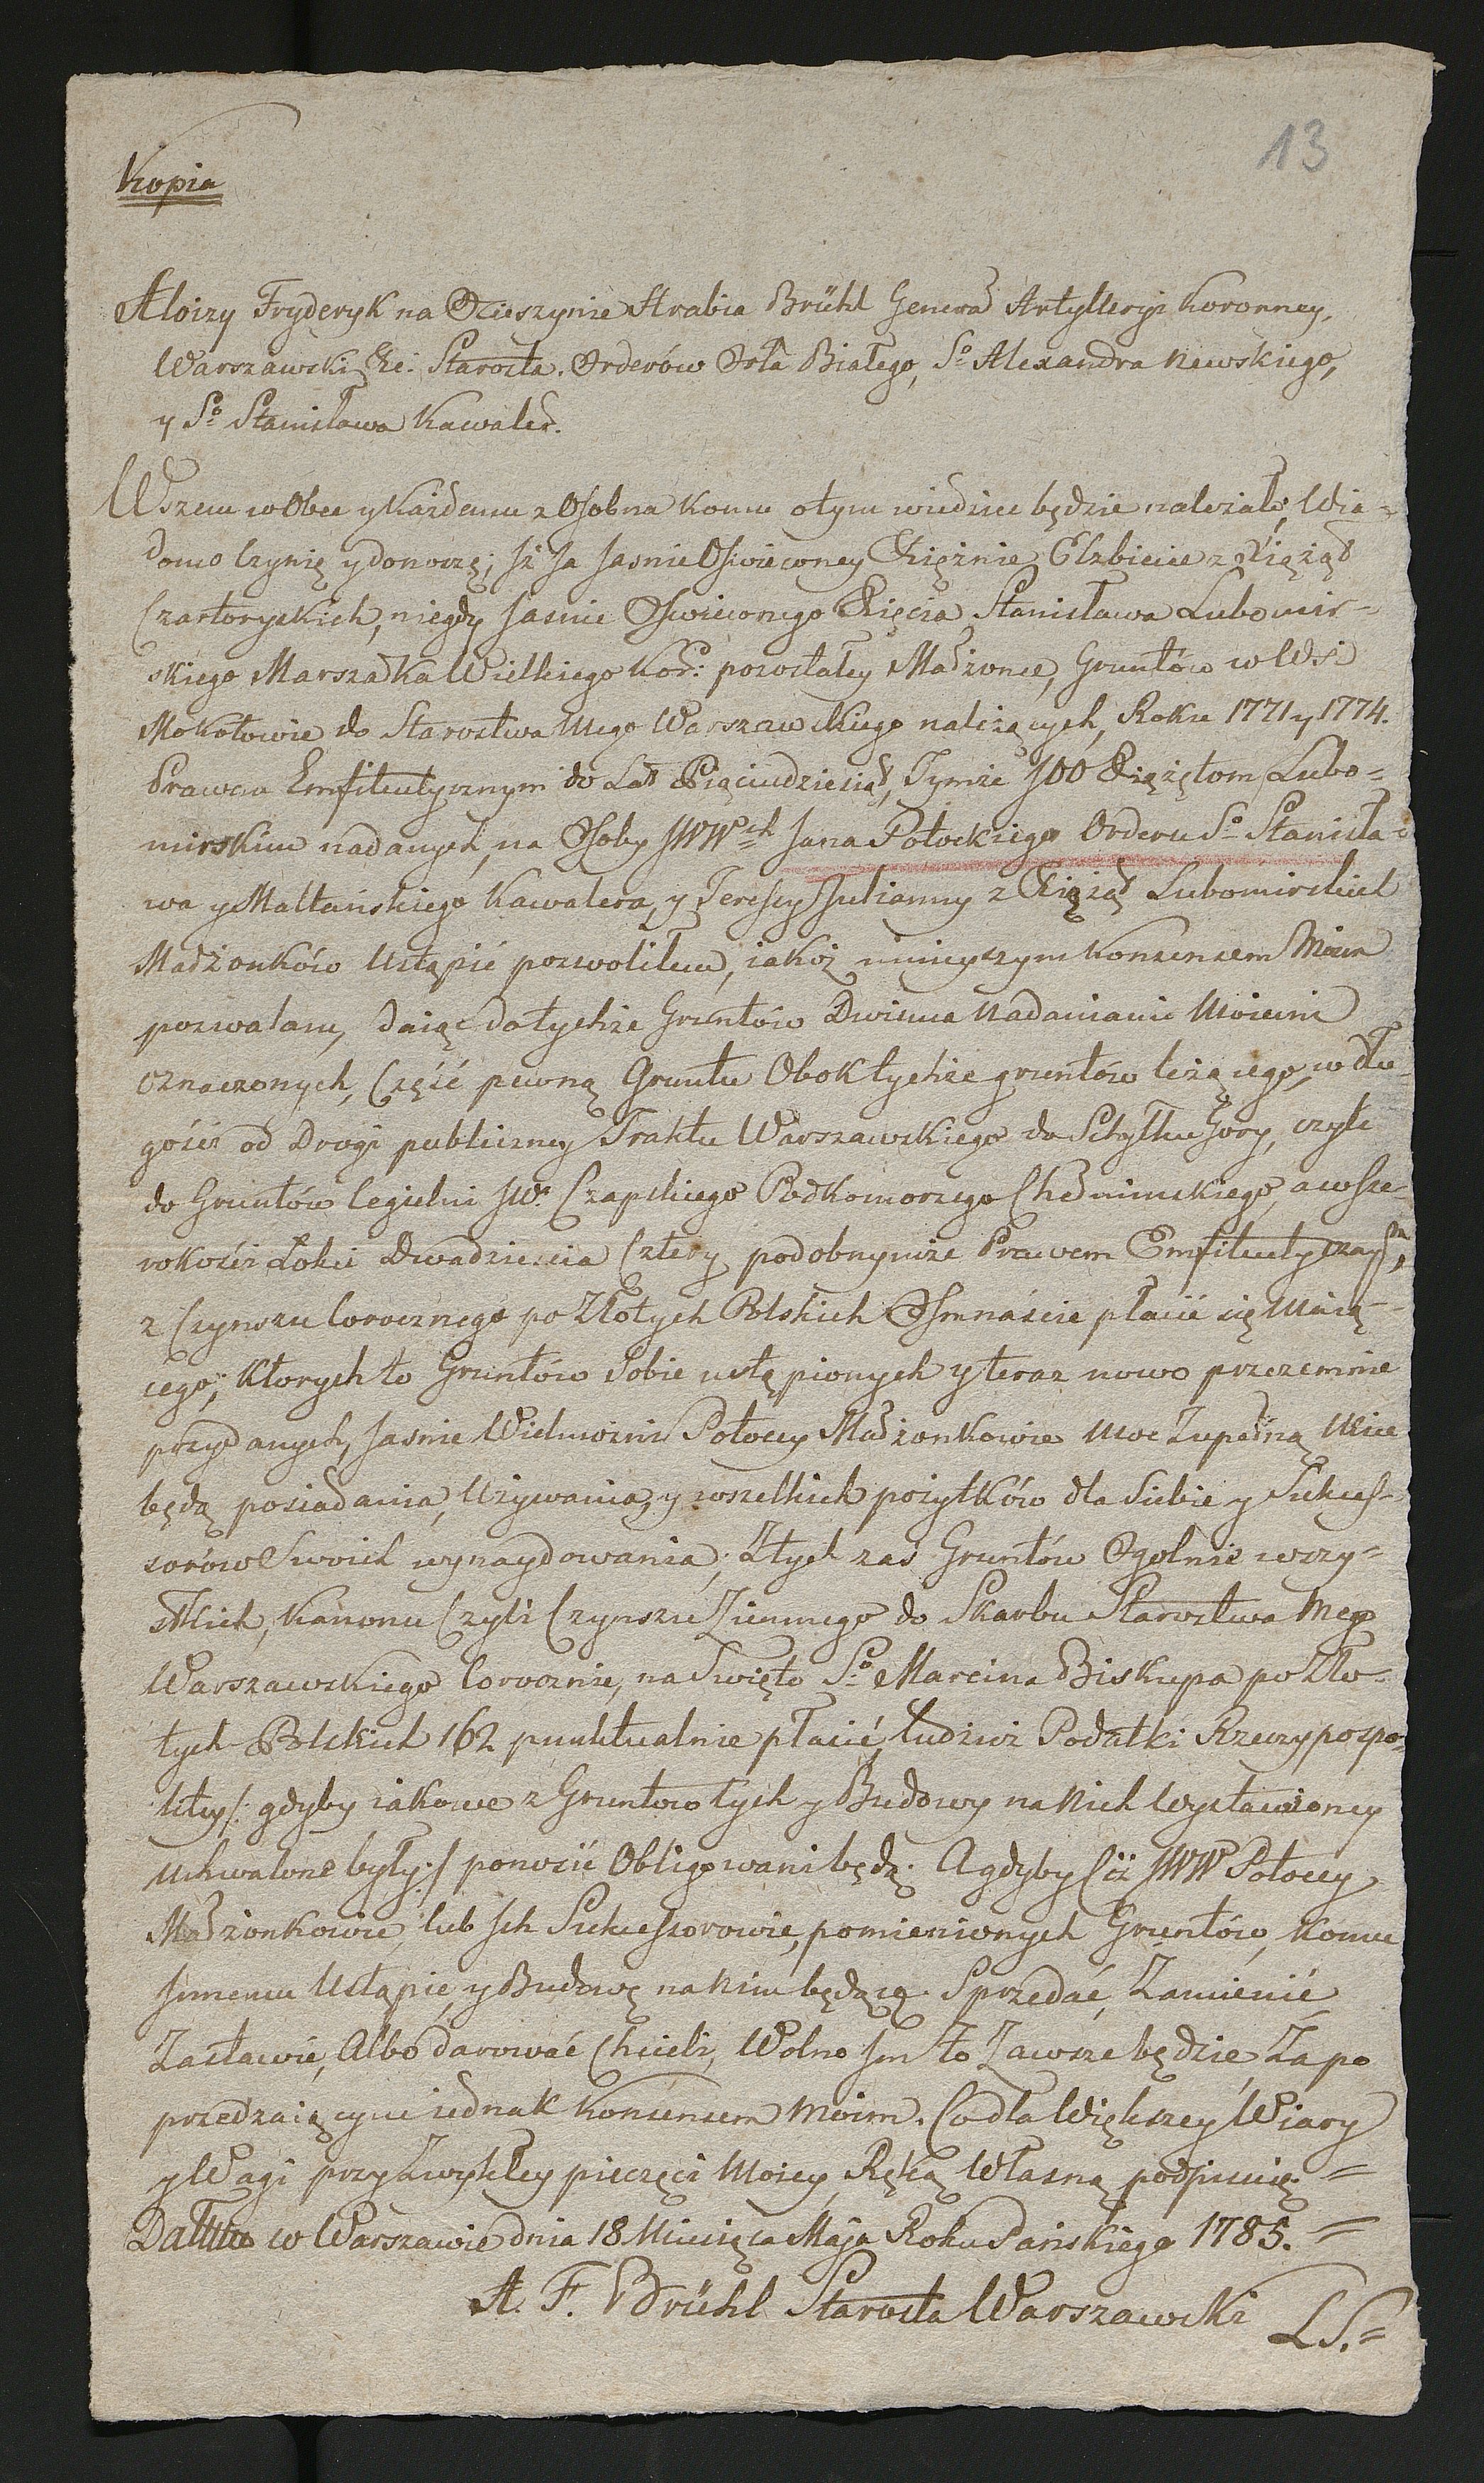 13
Kopia
Aloizy Fryderyk na Cieszynie Hrabia Brühl Generał Artylleryi Koronney,
Warszawski &c: Starosta. Orderów Orła Białego, So Alexandra Newskiego,
y So Stanisława Kawaler.
Wszem w Obec y Każdemu z Osobna komu o tym wiedzieć będzie należało, Wia=
domo Czynię y donoszę; Iż Ja Jasnie Oświeconey Xiężnie Elzbiecie z Xiążąt
Czartoryskich, niegdy Jasnie Oswieconego Xięcia Stanisława Lubomir=
skiego Marszałka Wielkiego Kor: pozostałey Małżonce, Gruntów w Wsi
Mokotowie do Starostwa Mego Warszawskiego należących, Roku 1771 y 1774.
Prawem Emfiteutycznym do Lat Pięciudziesiąt, Tymże JOO Xiążętom Lubo=
mirskim nadanych, na Osoby JWWch Jana Potockiego Orderu So Stanisła=
wa y Maltańskiego Kawalera, y Teressy Julianny z Xiążąt Lubomirskich
Małżonków Ustąpić pozwoliłem, iakoż ninieyszym Konsensem Moim
pozwalam, daiąc do tychże Gruntów Dwiema Nadaniami Moiemi
oznaczonych, Część pewną Gruntu Obok tychże gruntów leżącego, w dłu=
gości od Drogi publiczney Traktu Warszawskiego do Schyłku Gory, czyli
do Gruntów Cegielni JW. Czapskiego Podkomorzego Chełminskiego, a w Sze=
rokości Łokci Dwadziescia Cztery podobnymże Prawem Emfiteutyczaym,
z Czynszu Corocznego po Złotych Polskich Osmnaście płacić się Maią=
cego; Ktorych to Gruntów Sobie ustąpionych y teraz nowo przezemnie
przydanych, Jasnie Wielmożni Potoccy Małżonkowie Moc Zupełną Mieć
będą posiadania, Używania, y wszelkich pożytków dla Siebie y Sukces=
sorów Swoich wynaydowania; Z tych zaś Gruntów Ogolnie wszy=
stkich, Kanonu Czyli Czynszu Ziemnego do Skarbu Starostwa Mego
Warszawskiego Corocznie, na Swięto So Marcina Biskupa po Zło=
tych Polskich 162 punktualnie płacić, tudzież Podatki Rzeczypospo=
litey /: gdyby iakowe z Gruntow tych y Budowy na Nich Wystawioney
uchwalone były :/ ponosić Obligowani będą. A gdyby Ciż JWW Potoccy
Małżonkowie, lub Ich Sukcessorowie, pomienionych Gruntów, Komu
Innemu Ustąpić, y Budowę na Nim będącą Sprzedać, Zamienić,
Zastawić, Albo darować Chcieli, Wolno Im to Zawsze będzie, Za po
przedzaiącym iednak Konsensem Moim. Co dla Większey Wiary
y Wagi przy Zwykłey pieczęci Moiey, Ręką Własną podpisuię. =
Datum w Warszawie dnia 18 Miesiąca Maja Roku Pańskiego 1785. =
A. F. Brühl Starosta Warszawski LS. =